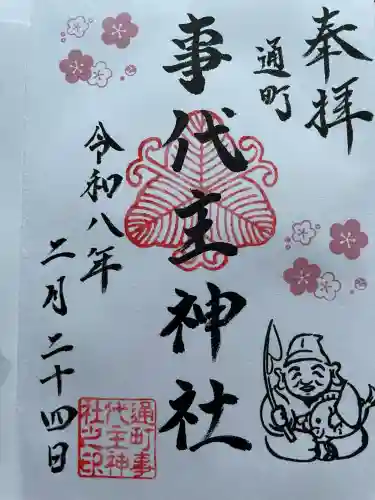 奉拝
通町
事代主神社
令和八年
二月二十四日
通町事
代主神
社之印